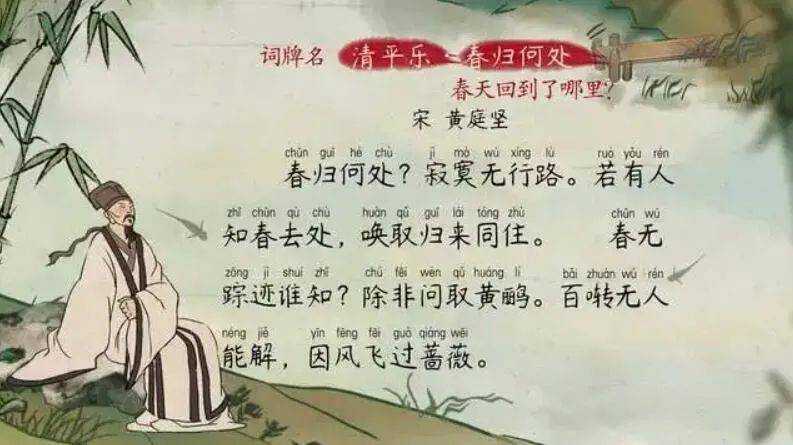 词牌名 清平乐 - 春归何处
春天回到了哪里?
宋 黄庭坚
chūn guī hé chù jì mò wú xíng lù ruò yǒu rén
春归何处？寂寞无行路。若有人
zhī chūn qù chù huàn qǔ guī lái tóng zhù chūn wú
知春去处，唤取归来同住。 春无
zōng jì shuí zhī chú fēi wèn qǔ huáng lí bǎi zhuàn wú rén
踪迹谁知？除非问取黄鹂。百啭无人
néng jiě yīn fēng fēi guò qiáng wēi
能解，因风飞过蔷薇。